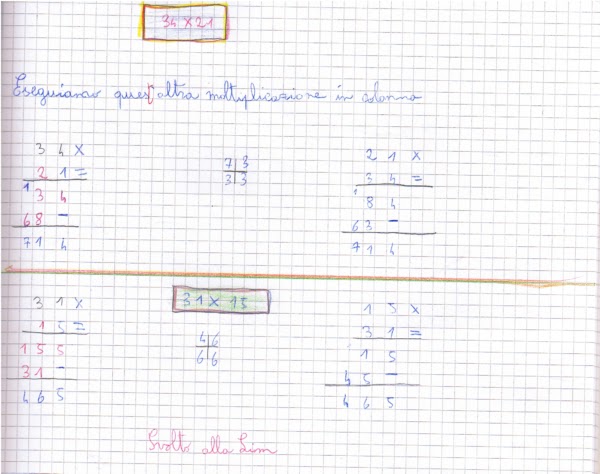 34x21
Eseguiamo quest'altra moltiplicazione in colonna
34x
21=
1
34
68-
714
7 3
3 3
21x
34=
1
84
63-
714
31x15
31x
15=
155
31-
465
4 6
6 6
15x
31=
15
45-
465
Svolto alla Lim